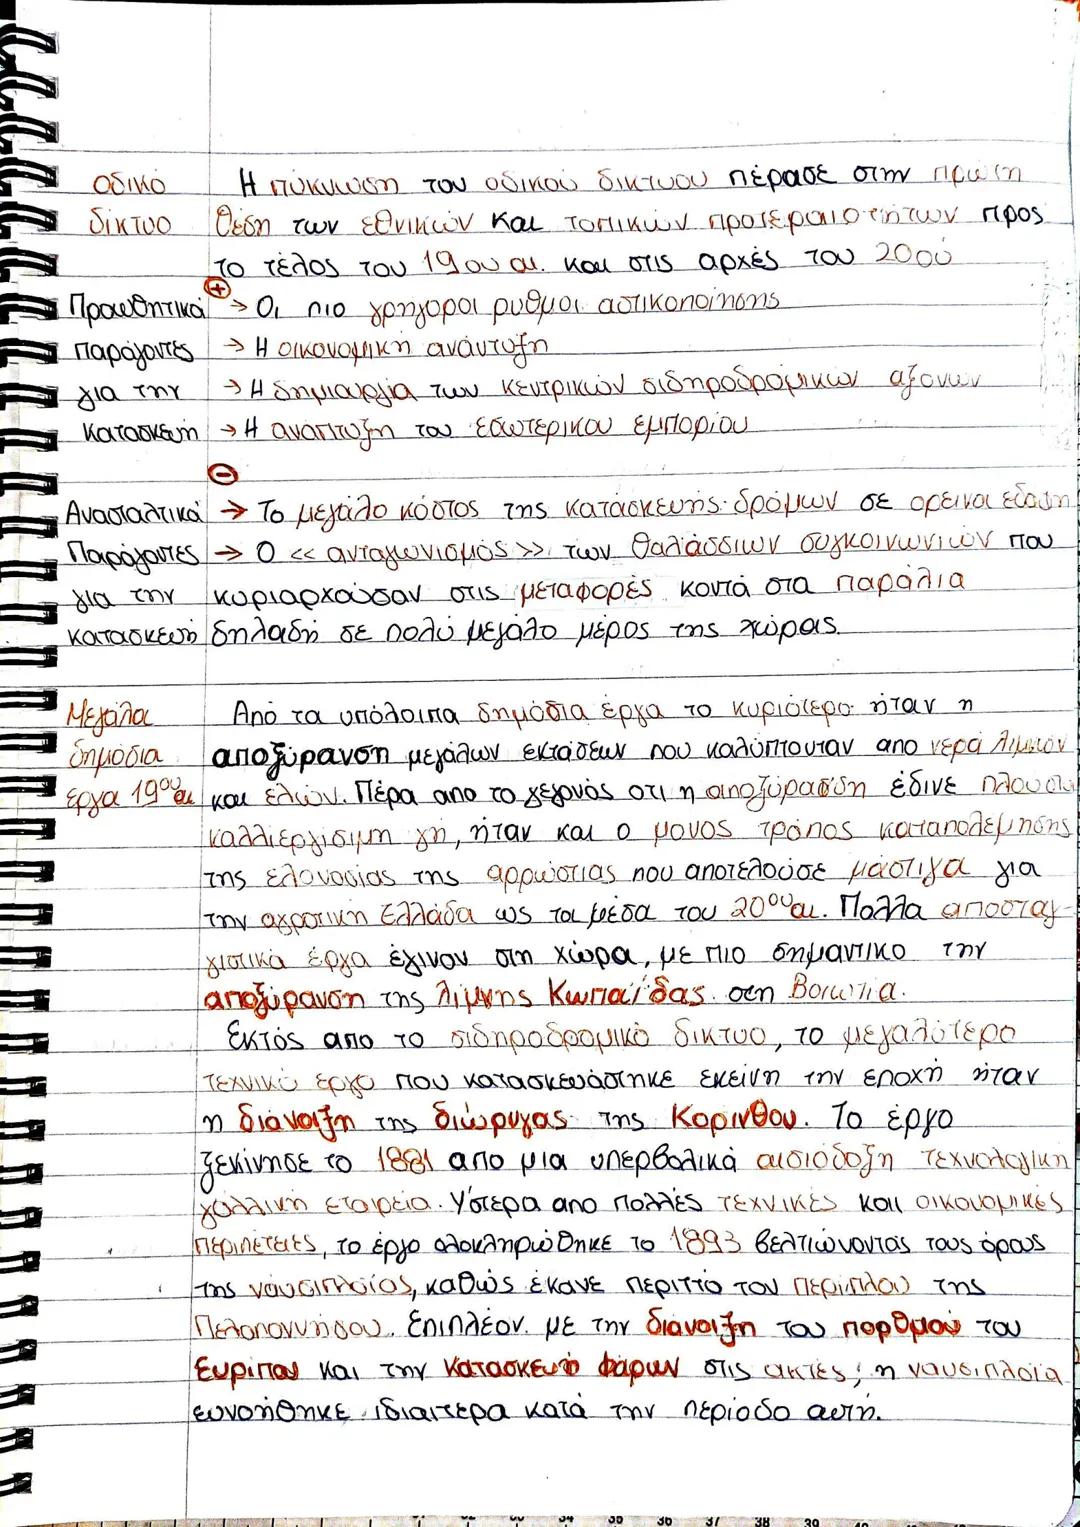 οδικό Η πύκνωση του οδικού δικτύου πέρασε στην πρώτη
δίκτυο θέση των εθνικών και τοπικών προτεραιοτήτων προς
το τέλος του 19ου αι. και στις αρχές του 20ού
Προωθητικά ⊕ → Οι πιο γρήγοροι ρυθμοι αστικοποίησης
παράγοντες → Η οικονομική ανάπτυξη
για την → Η δημιουργία των κεντρικών σιδηροδρομικών αξόνων
κατασκευή → Η αναπτυξη του εσωτερικου εμποριου
⊖
Ανασταλτικά → Το μεγάλο κόστος της κατάσκευής δρόμων σε ορεινα εδαφη
Παράγοντες → Ο << ανταγωνισμός >> των θαλάσσιων συγκοινωνιών που
για την κυριαρχούσαν στις μεταφορές κοντά στα παράλια
κατασκευή δηλαδή σε πολύ μεγάλο μέρος της χώρας.
Μεγάλα Από τα υπόλοιπα δημόσια έργα το κυριότερο ήταν η
δημόσια αποξύρανση μεγάλων εκτάσεων που καλύπτονταν απο νερά λιμνών
έργα 19ου αι και ελών. Πέρα απο το γεγονός οτι η αποξύρανση έδινε πλούσια
καλλιεργίσιμη γη, ήταν και ο μονος τρόπος καταπολέμησης
της ελονοσίας της αρρώστιας που αποτελούσε μάστιγα για
την αγροτική Ελλάδα ως τα μέσα του 20ού αι. Πολλα αποστραγ-
γιστικά έργα έγινον στη χώρα, με πιο σημαντικο την
αποξύρανση της λίμνης Κωπαΐδας στη Βοιωτία.
Εκτός απο το σιδηροδρομικό δικτυο, το μεγαλύτερο
τεχνικό εργο που κατασκευάστηκε εκείνη την εποχή ήταν
η διάνοιξη της διώρυγας της Κορίνθου. Το έργο
ξεκίνησε το 1881 απο μια υπερβολικά αισιόδοξη τεχνολογικη
γαλλική εταιρεία. Υστερα απο πολλές τεχνικές και οικονομικές
περιπέτειες, το έργο ολοκληρώθηκε το 1893 βελτιώνοντας τους όρους
της ναυσιπλοίας, καθώς έκανε περιττό τον περίπλου της
Πελοποννήσου. Επιπλέον με την διάνοιξη του πορθμού του
Ευρίπου και την κατασκευή φάρων στις ακτές, η ναυσιπλοΐα
ευνοήθηκε ιδιαιτερα κατά την περίοδο αυτή.
34 35 36 37 38 39